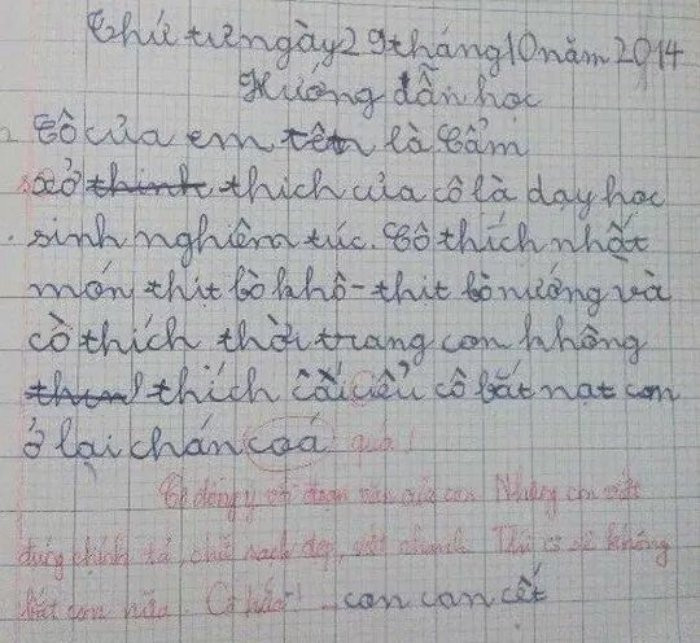 Thứ tư ngày 29 tháng 10 năm 2014
Hướng dẫn học
Cô của em tên là Cẩm
sở thinh thich của cô là dạy học
sinh nghiêm túc. Cô thích nhất
món thịt bò khô - thit bò nướng và
cô thích thời trang con không
thích cái kiểu cô bắt nạt con
ở lại chán coá quá!
Cô đồng ý với đoạn văn của con Nhưng con viết
đúng chính tả, chữ sạch đẹp, viết nhanh Thì cô sẽ không
bắt con nữa. Cô hứa! con can cết